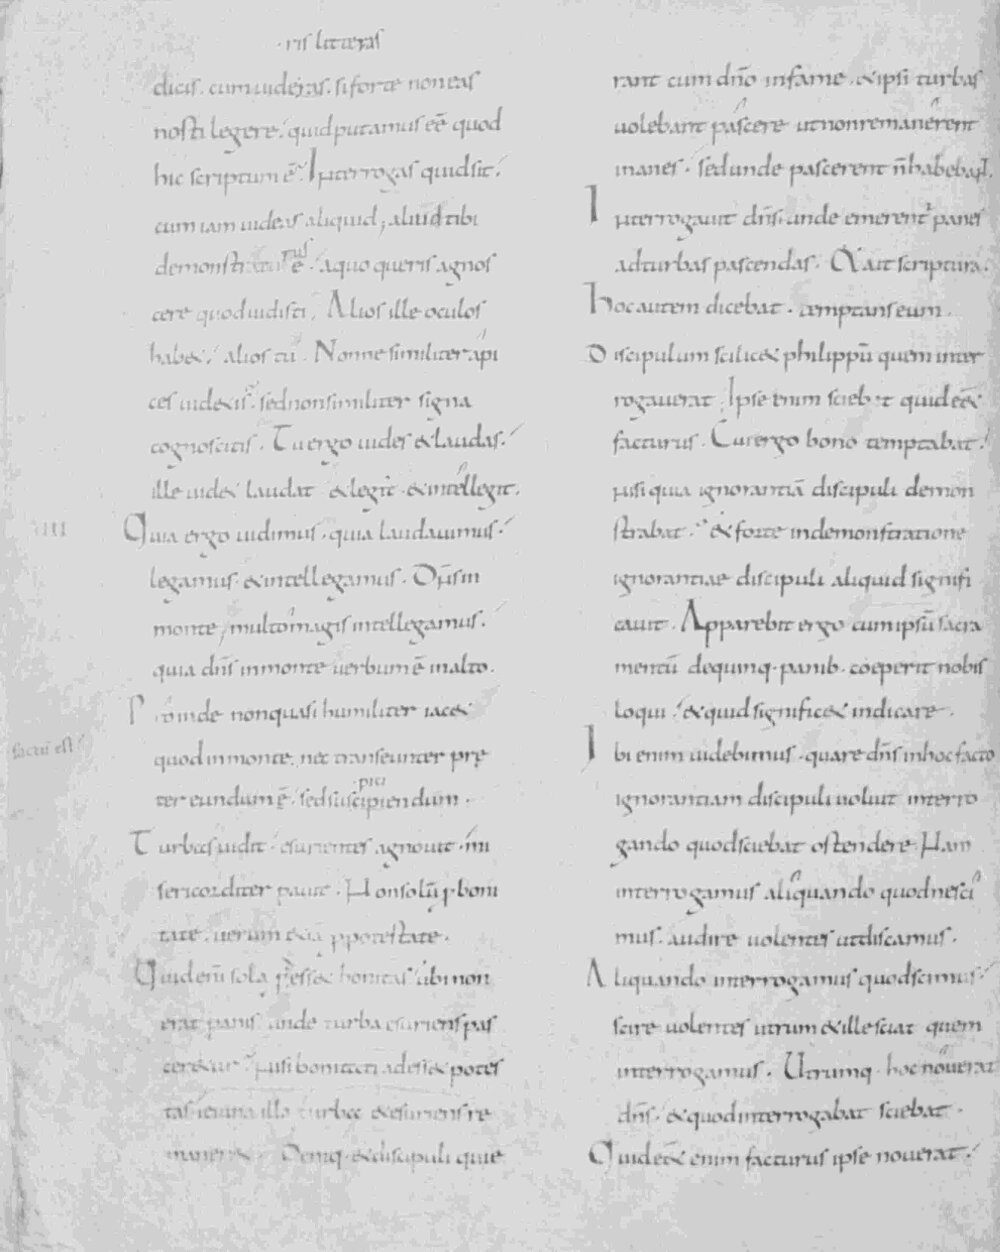 ·ris litteras
dicis. cum uideras. si forte non eas
nosti legere. quid putamus eē quod
hic scriptum ē. Interrogas quid sit.
cum iam uideas aliquid; aliud tibi
ē. a quo queris agnos
cere quod uidisti. Alios ille oculos
habet. alios tu. Nonne similiter api
ces uidetis. sed non similiter signa
cognoscitis. Tu ergo uides & laudas.
ille uidet laudat & legit. & intellegit.
VIIII Quia ergo uidimus. quia laudauimus.
legamus. & intellegamus. Dn̄s in
monte; multo magis intellegamus.
quia dn̄s in monte uerbum ē in alto.
Proinde non quasi humiliter iacet
factū est quod in monte. nec transeunter prę
pici
ter eundum ē. sed suscipiendum.
Turbas uidit. esurientes agnouit. mi
sericorditer pauit. Non solū p boni
tate. uerum etiā p potestate.
Quid enī sola p̄ess& bonitas ubi non
erat panis unde turba esuriens pas
ceretur. nisi bonitati adess& potes
tas ieiuna illa turba & esuriens re
maner&. Deniq· & discipuli quie
rant cum dn̄o in fame. & ipsi turbas
uolebant pascere ut non remanerent
inanes. sed unde pascerent n̄ habebant.
Interrogauit dn̄s. unde emerent panes
ad turbas pascendas. & ait scriptura.
hoc autem dicebat. temptans eum.
Discipulum scilic& philippū quem inter
rogauerat. Ipse enim sciebat quid eēt
facturus. Cur ergo bono temptabat.
nisi quia ignorantiā discipuli demon
strabat. & forte in demonstratione
ignorantiae discipuli aliquid signifi
cauit. Apparebit ergo cum ipsū sacra
mentū de quinq· panib· coeperit nobis
loqui. & quid signific& indicare.
Ibi enim uidebimus. quare dn̄s in hoc facto
ignorantiam discipuli uoluit interro
gando quod sciebat ostendere. Nam
interrogamus aliquando quod nesci
mus. audire uolentes ut discamus.
Aliquando interrogamus quod scimus.
scire uolentes utrum & ille sciat quem
interrogamus. Utrumq· hoc nouerat
dn̄s. & quod interrogabat sciebat.
Quid eēt enim facturus ipse nouerat.